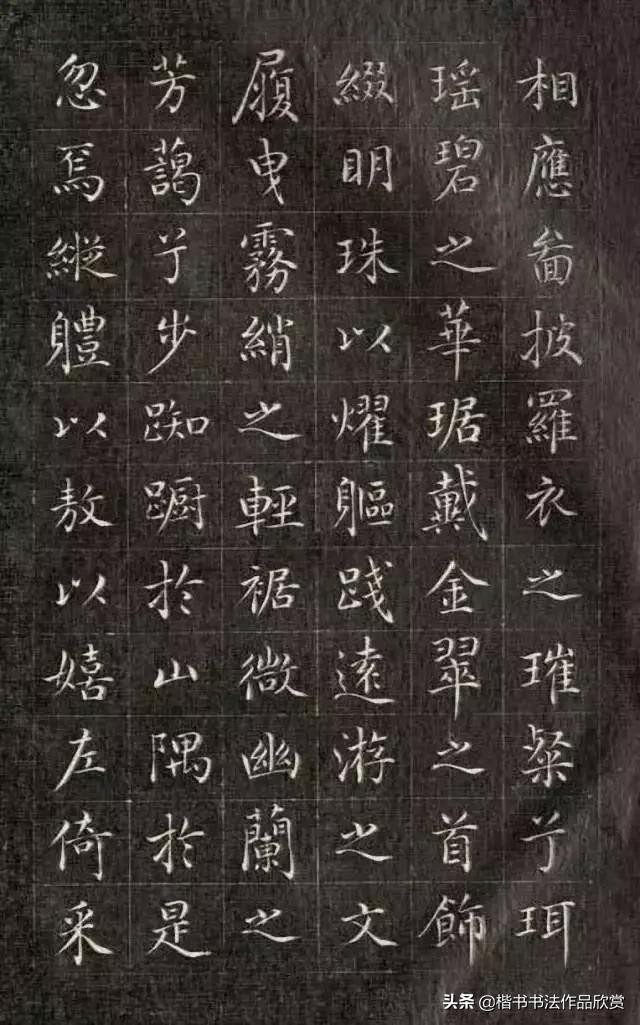 相應啚披羅衣之璀粲兮珥
瑶碧之華琚戴金翠之首飾
綴明珠以耀軀踐遠游之文
履曳霧綃之輕裾微幽蘭之
芳藹兮步踟蹰於山隅於是
忽焉縱體以敖以嬉左倚采
头条 @楷书书法作品欣赏